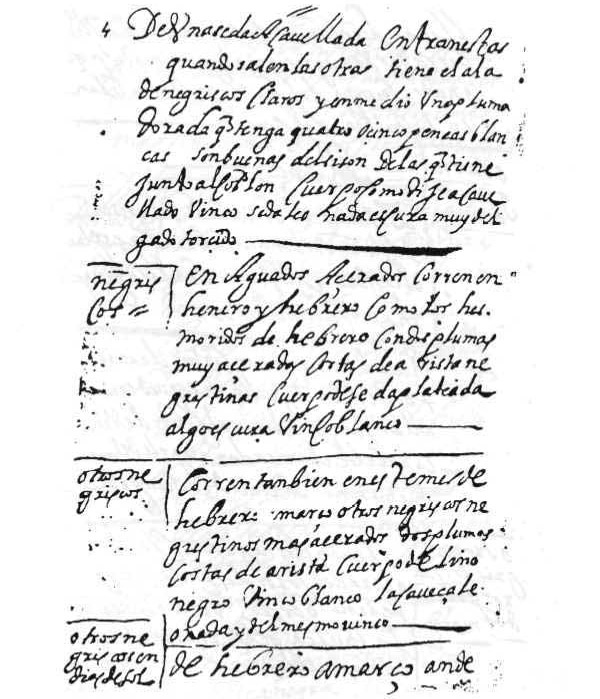 De Vna seda aCavellada Entran estas
quando salen las otras tiene el ala
de negriscos Claros y en medio Vna pluma
dorada q̃ tenga quatro o cinco pencas blan
cas son buenas del sison De las q̃ tiene
Junto al Cobdon Cuerpo como dije acave
llado Vinco seda leonada escura muy del
gado torcido
negris
cos =
En Aguados Acerados Corren en
henero y hebrero Como los hes.
moridos de hebrero Con dos plumas
muy aceradas Cortas de arista ne
gristinas Cuerpo de seda plateada
algo escura Vinco blanco
otros ne
griscos
Corren tanbien en este mes de
hebrero marco otros negriscos ne
gristinos mas acerados dos plumas
Cortas de arista Cuerpo de lino
negro Vinco blanco la Caveca le
onada y del mesmo vinco
otros ne
griscos en
dias de sol
de hebrero a março an de